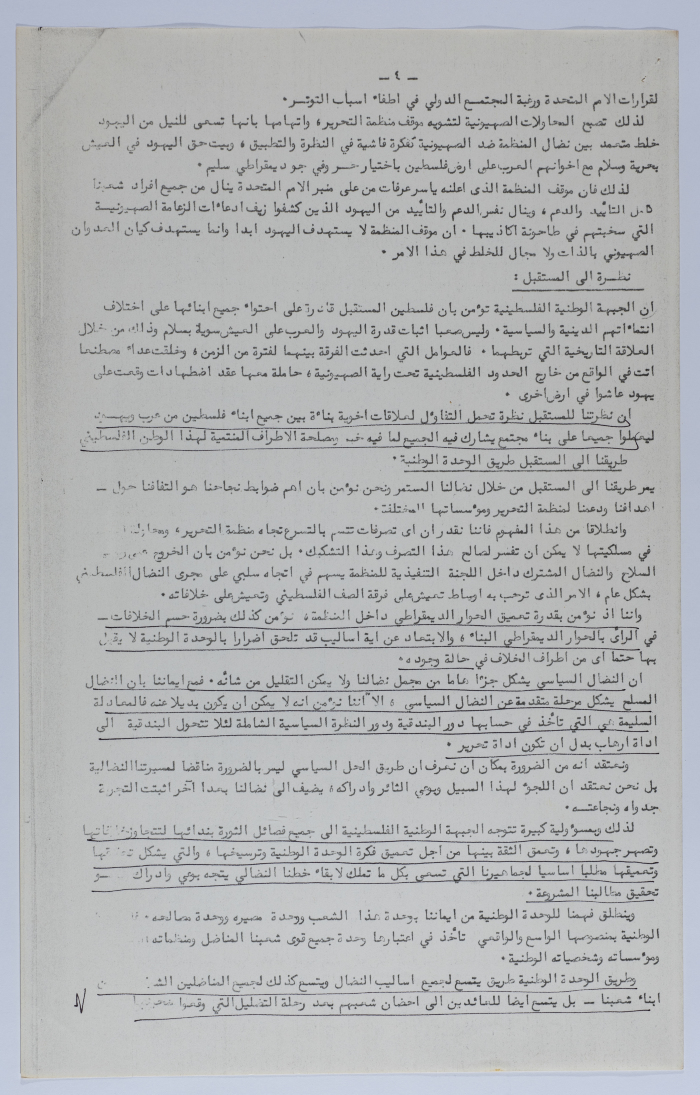 — ٤ —
لقرارات الامم المتحدة ورغبة المجتمع الدولي في اطفاء اسباب التوتر .
لذلك تصبح المحاولات الصهيونية لتشويه موقف منظمة التحرير ، واتهامها بانها تسعى للنيل من اليهود
خلط متعمد بين نضال المنظمة ضد الصهيونية كفكرة فاشية في النظرة والتطبيق ، وبين حق اليهود في العيش
بحرية وسلام مع اخوانهم العرب على ارض فلسطين باختيار حر وفي جو ديمقراطي سليم .
لذلك فان موقف المنظمة الذى اعلنه ياسر عرفات من على منبر الامم المتحدة ينال من جميع افراد شعبنا
التأييد والدعم ، وينال نفس الدعم والتأييد من اليهود الذين كشفوا زيف ادعاءات الزعامة الصهيونية
التي سحبتهم في طاحونة اكاذيبها . ان موقف المنظمة لا يستهدف اليهود ابدا وانما يستهدف كيان العدوان
الصهيوني بالذات ولا مجال للخلط في هذا الامر .
نظرة الى المستقبل :
ان الجبهة الوطنية الفلسطينية تؤمن بان فلسطين المستقبل قادرة على احتواء جميع ابنائها على اختلاف
انتماءاتهم الدينية والسياسية . وليس صعبا اثبات قدرة اليهود والعرب على العيش سوية بسلام وذلك من خلال
العلاقة التاريخية التي تربطهما . فالعوامل التي احدثت الفرقة بينهما لفترة من الزمن ، وخلقت عداء مصطنعا
اتت في الواقع من خارج الحدود الفلسطينية تحت راية الصهيونية ، حاملة معها عقد اضطهادات وقعت على
يهود عاشوا في ارض اخرى .
ان نظرتنا للمستقبل نظرة تحمل التفاؤل لعلاقات اخوية بناءة بين جميع ابناء فلسطين من عرب ويهود
ليعملوا جميعا على بناء مجتمع يشارك فيه الجميع لما فيه خير ومصلحة الاطراف المنتمية لهذا الوطن الفلسطيني
طريقنا الى المستقبل طريق الوحدة الوطنية .
يمر طريقنا الى المستقبل من خلال نضالنا المستمر ونحن نؤمن بان اهم ضوابط نجاحنا هو التفافنا حول —
اهدافنا ودعمنا لمنظمة التحرير ومؤسساتها المختلفة .
وانطلاقا من هذا المفهوم فاننا نقدر ان اى تصرفات تتسم بالتسرع تجاه منظمة التحرير ،
في مسلكيتها لا يمكن ان تفسر لصالح هذا التصرف وهذا التشكيك . بل نحن نؤمن بان الخروج
السلاح والنضال المشترك داخل اللجنة التنفيذية للمنظمة يسهم في اتجاه سلبي على مجرى النضال الفلسطيني
بشكل عام ، الامر الذى ترحب به اوساط تعيش على فرقة الصف الفلسطيني وتعيش على خلافاته .
واننا اذ نؤمن بقدرة تعميق الحوار الديمقراطي داخل المنظمة ، نؤمن كذلك بضرورة حسم الخلافات —
في الرأى بالحوار الديمقراطي البناء ، والابتعاد عن اية اساليب قد تلحق اضرارا بالوحدة الوطنية لا يقبل
بها حتما اى من اطراف الخلاف في حالة وجوده .
ان النضال السياسي يشكل جزءا هاما من مجمل نضالنا ولا يمكن التقليل من شأنه . فمع ايماننا بان النضال
المسلح يشكل مرحلة متقدمة عن النضال السياسي ، الا اننا نؤمن انه لا يمكن ان يكون بديلا عنه فالمعادلة
السليمة هي التي تأخذ في حسابها دور البندقية ودور النظرة السياسية الشاملة لئلا تتحول البندقية الى
اداة ارهاب بدل ان تكون اداة تحرير .
ونعتقد انه من الضرورة بمكان ان نعرف ان طريق الحل السياسي ليس بالضرورة مناقضا لمسيرتنا النضالية
بل نحن نعتقد ان اللجوء لهذا السبيل وبوعي الثائر وادراكه ، يضيف الى نضالنا بعدا آخر اثبتت التجربة
جدواه ونجاعته .
لذلك وبمسؤولية كبيرة تتوجه الجبهة الوطنية الفلسطينية الى جميع فصائل الثورة بندائها لتتجاوز خلافاتها
وتصهر جهودها ، وتعمق الثقة بينها من اجل تعميق فكرة الوحدة الوطنية وترسيخها ، والتي يشكل
وتعميقها مطلبا اساسيا لجماهيرنا التي تسعى بكل ما تملك لابقاء خطنا النضالي يتجه بوعي وادراك
تحقيق مطالبنا المشروعة .
وينطلق فهمنا للوحدة الوطنية من ايماننا بوحدة هذا الشعب ووحدة مصيره ووحدة مصالحه .
الوطنية بمفهومها الواسع والواقعي تأخذ في اعتبارها وحدة جميع قوى شعبنا المناضل ومنظماته
ومؤسساته وشخصياته الوطنية .
وطريق الوحدة الوطنية طريق يتسع لجميع اساليب النضال ويتسع كذلك لجميع المناضلين
ابناء شعبنا — بل يتسع ايضا للعائدين الى احضان شعبهم بعد رحلة التضليل التي وقعوا